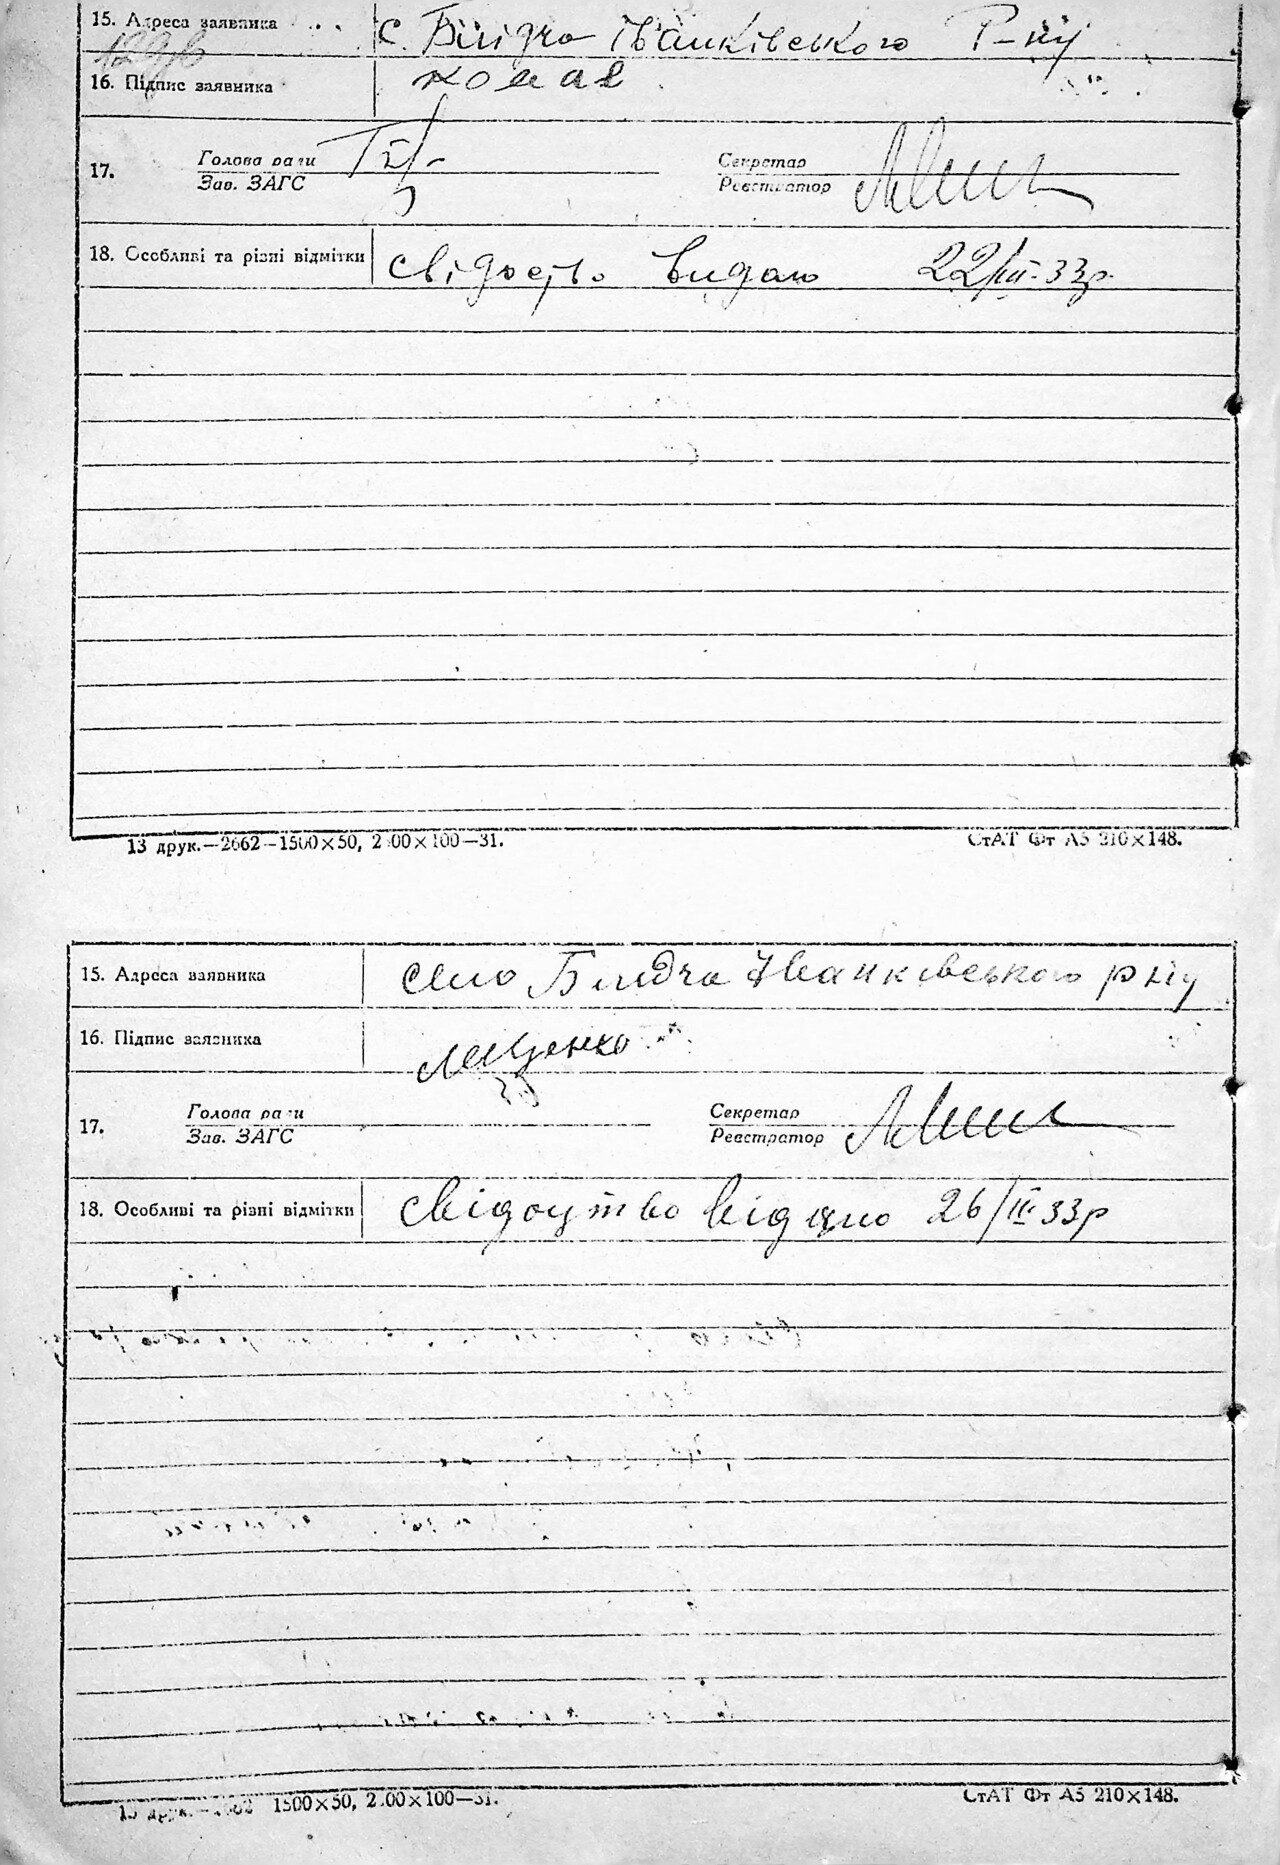 15. Адреса заявника с. Білідча Іванківського Р-ну
129зв
16. Підпис заявника
17. Голова ради Секретар
Зав. ЗАГС Реєстратор
18. Особливі та різні відмітки свідоство видано 22/III-33р.
13 друк.—2662—1500×50, 2 00×100—31. СтАТ Фт А5 210×148.
15. Адреса заявника село Білідча Іванківського рну
16. Підпис заявника Лещенко
17. Голова ради Секретар
Зав. ЗАГС Реєстратор
18. Особливі та різні відмітки свідоцтво відано 26/III 33р
13 друк.—2662 1500×50, 2.00×100—31. СтАТ Фт А5 210×148.